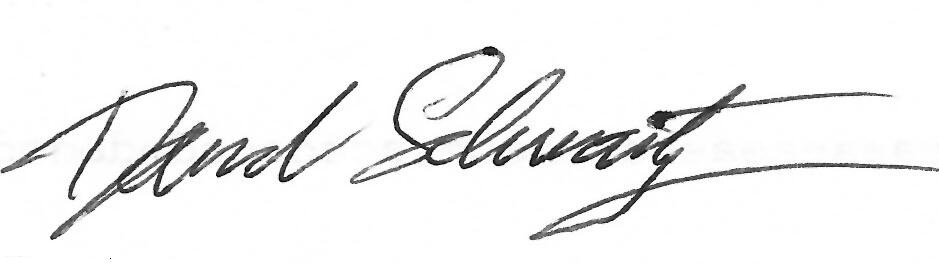 David Schwartz